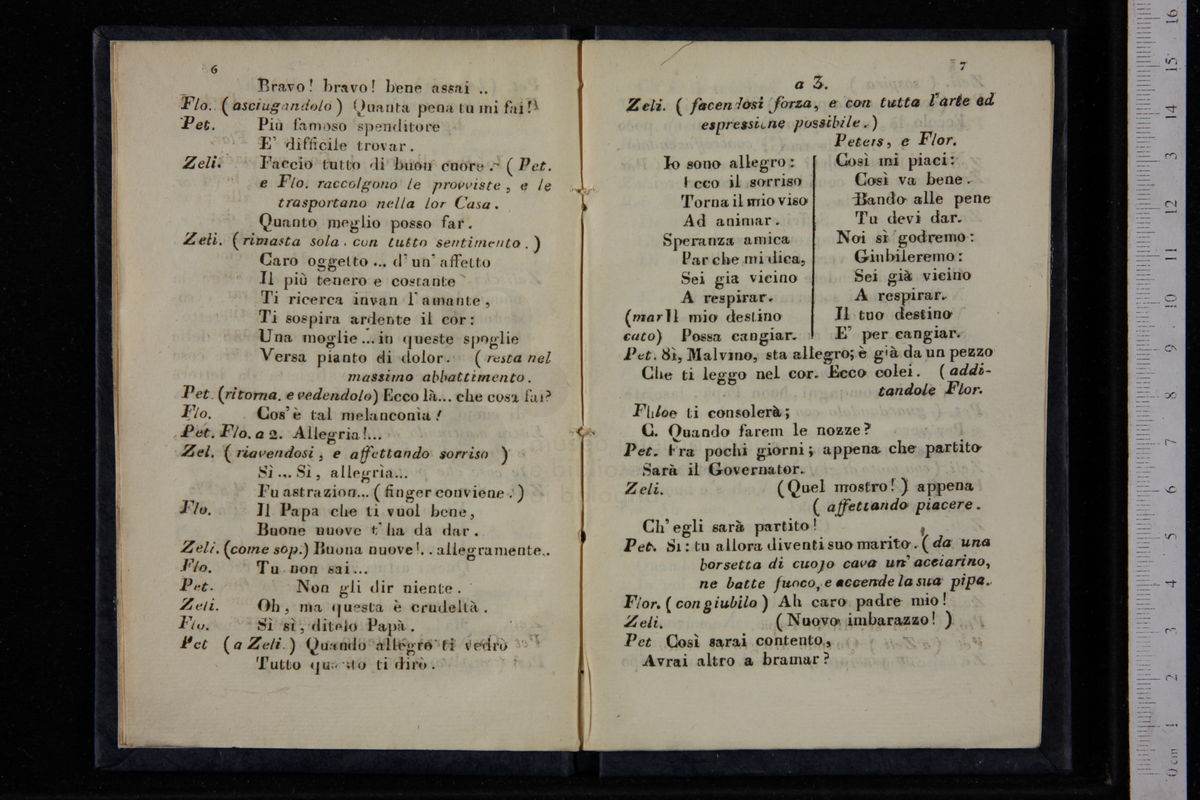 6
Bravo! bravo! bene assai ..
Flo. (asciugandolo) Quanta pena tu mi fai!
Pet. Più famoso spenditore
E' difficile trovar.
Zeli. Faccio tutto di buon cuore. (Pet.
e Flo. raccolgono le provviste, e le
trasportano nella lor Casa.
Quanto meglio posso far.
Zeli. (rimasta sola. con tutto sentimento.)
Caro oggetto ... d'un' affetto
Il più tenero e costante
Ti ricerca invan l'amante,
Ti sospira ardente il cor:
Una moglie ... in queste spoglie
Versa pianto di dolor. (resta nel
massimo abbattimento.
Pet. (ritorna. e vedendolo) Ecco là... che cosa fai?
Flo. Cos'è tal melanconia!
Pet. Flo. a 2. Allegria!...
Zel. (riavendosi, e affettando sorriso )
Sì ... Sì, allegria...
Fu astrazion... (finger conviene.)
Flo. Il Papa che ti vuol bene,
Buone nuove t'ha da dar.
Zeli. (come sop.) Buona nuove!.. allegramente..
Flo. Tu non sai...
Pet. Non gli dir niente.
Zeli. Oh, ma questa è crudeltà.
Flo. Sì sì, ditelo Papà.
Pet (a Zeli.) Quando allegro ti vedrò
Tutto questo ti dirò.
7
a 3.
Zeli. (facendosi forza, e con tutta l'arte ed
espressione possibile.)
Peters, e Flor.
Io sono allegro: Così mi piaci:
Ecco il sorriso Così va bene.
Torna il mio viso Bando alle pene
Ad animar. Tu devi dar.
Speranza amica Noi sì godremo:
Par che mi dica, Giubileremo:
Sei gia vicino Sei già vicino
A respirar. A respirar.
(mar Il mio destino Il tuo destino
cato) Possa cangiar. E' per cangiar.
Pet. Sì, Malvino, sta allegro; è già da un pezzo
Che ti leggo nel cor. Ecco colei. (addi-
tandole Flor.
Floe ti consolerà;
C. Quando farem le nozze?
Pet. Fra pochi giorni; appena che partito
Sarà il Governator.
Zeli. (Quel mostro!) appena
(affettando piacere.
Ch' egli sarà partito!
Pet. Sì: tu allora diventi suo marito. (da una
borsetta di cuojo cava un' acciarino,
ne batte fuoco, e accende la sua pipa.
Flor. (con giubilo) Ah caro padre mio!
Zeli. (Nuovo imbarazzo! )
Pet Così sarai contento,
Avrai altro a bramar?